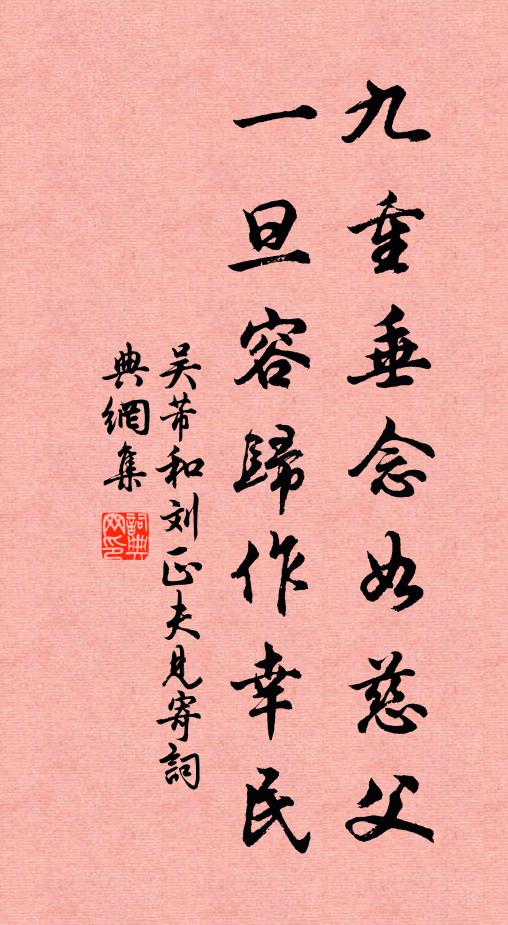 九重垂念如慈父
一旦容歸作幸民
吴芾和刘正夫見寄詞
典網集
詞典網印